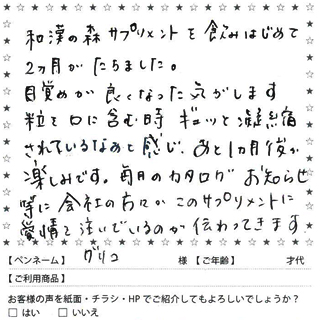 和漢の森サプリメントを飲みはじめて
2ヵ月がたちました。
目覚めが良くなった気がします
粒を口に含む時ギュッと凝縮
されているなぁと感じ、あと1ヵ月後が
楽しみです。毎月のカタログお知らせ
等に会社の方々がこのサプリメントに
愛情を注いでいるのが伝わってきます。
【ペンネーム】 グリコ 様 【ご年齢】 才代
【ご利用商品】
お客様の声を紙面・チラシ・HPでご紹介してもよろしいでしょうか?
□ はい □ いいえ